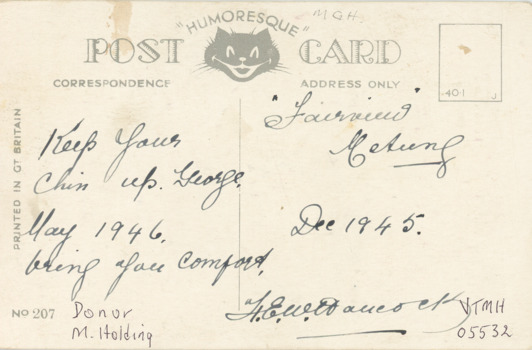 MGH
"HUMORESQUE"
POST CARD
CORRESPONDENCE
ADDRESS ONLY
401 J
PRINTED IN GT BRITAIN
Keep Your
Chin up. George.
May 1946.
bring you comfort.
"Fairview"
Metung
Dec 1945.
F.E.W. Hancock
No 207
Donor
M. Holding
VTMH
05532